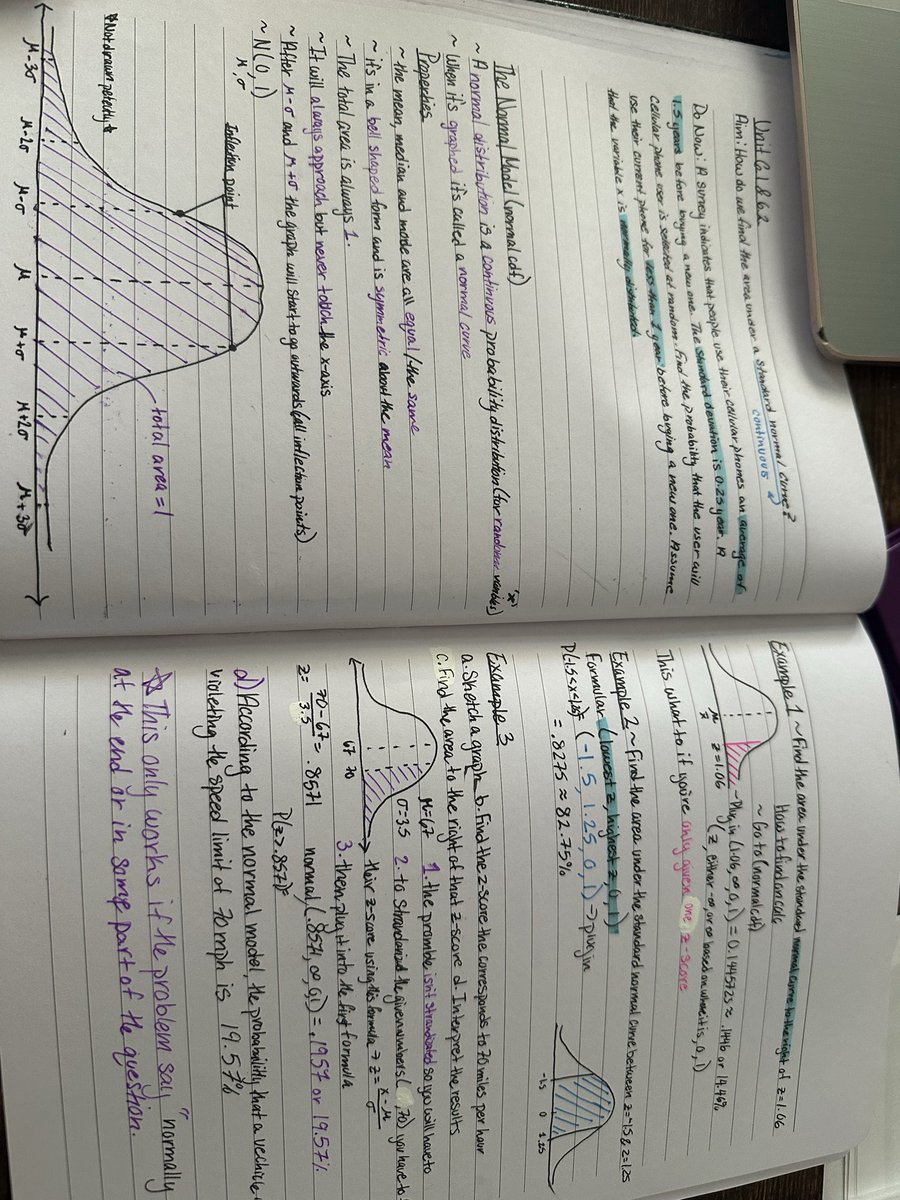 Unit 6.1 & 6.2
Aim: How do we find the area under a standard normal curve?
continuous
Do Now: A survey indicates that people use their cellular phones an average of
1.5 years before buying a new one. The standard deviation is 0.25 year. A
cellular phone user is selected at random. Find the probability that the user will
use their current phone for less than 1 year before buying a new one. Assume
that the variable x is normally distributed.
The Normal Model (normalcdf)
~ A normal distribution is a continuous probability distribution (for random variables)
"x"
~ When it's graphed it's called a normal curve
Properties
~ the mean, median and mode are all equal/the same
~ it's in a bell shaped form and is symmetric about the mean
~ The total area is always 1.
~ It will always approach but never touch the x-axis
~ After μ-σ and μ+σ the graph will start to go outwards (all inflection points)
~ N(0,1)
μ,σ
Inflection point
total area = 1
*Not drawn perfectly*
μ-3σ μ-2σ μ-σ μ μ+σ μ+2σ μ+3σ
Example 1 ~ Find the area under the standard normal curve to the right of z=1.06
How to find on calc
~ Go to (normalcdf)
~ Plug in (1.06, ∞, 0, 1) = 0.1445723 ≈ .1446 or 14.46%
(z, either -∞, or ∞ based on where it is, 0, 1)
μ z=1.06
x̄
This what to if you're only given one z-score
Example 2 ~ Find the area under the standard normal curve between z=-1.5 & z=1.25
Formular (lowest z, highest z, 0, 1)
(-1.5, 1.25, 0, 1) → plug in
P(-1.5≤x≤1.25)
= .8275 ≈ 82.75%
-1.5 0 1.25
Example 3
a. Sketch a graph b. Find the z-score the corresponds to 70 miles per hour
c. Find the area to the right of that z-score d. Interpret the results
μ=67
σ=3.5
67 70
1. the promble isn't strandated so you will have to
2. to Strandarized the given numbers ( 70) you have to
their z-score using this formula → z = x-μ/σ
3. then plug it into the first formula
z = 70-67/3.5 = .8571 normal(.8571, ∞, 0,1) = .1957 or 19.57%
P(z>.8571)=
d) According to the normal model, the probability that a vechicle
violating the speed limit of 70 mph is 19.57%
☆ This only works if the problem say "normally
at the end or in some part of the question.